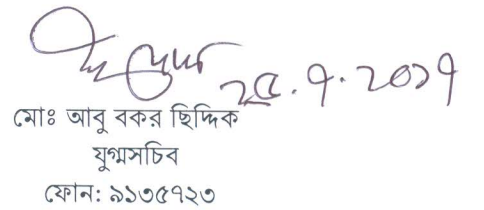 ২৫.৭.২০১৭
মোঃ আবু বকর ছিদ্দিক
যুগ্মসচিব
ফোন: ৯১৩৫৭২৩